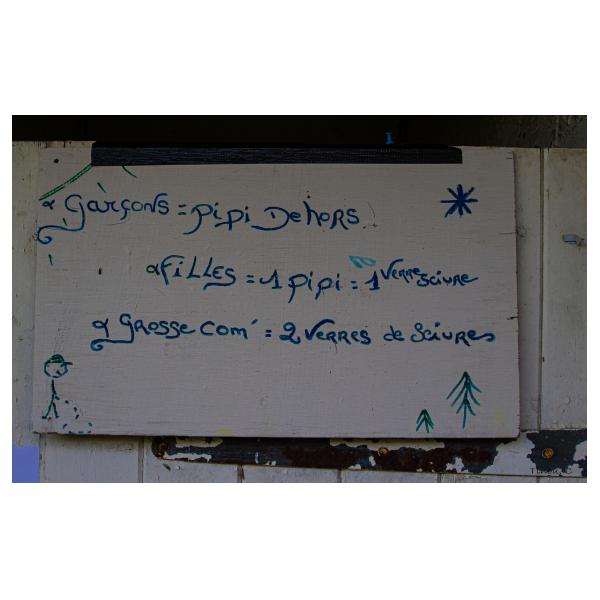 Garçons = pipi Dehors
Filles = 1 pipi = 1 Verre Sciure
Grosse Com' = 2 Verres de Sciures